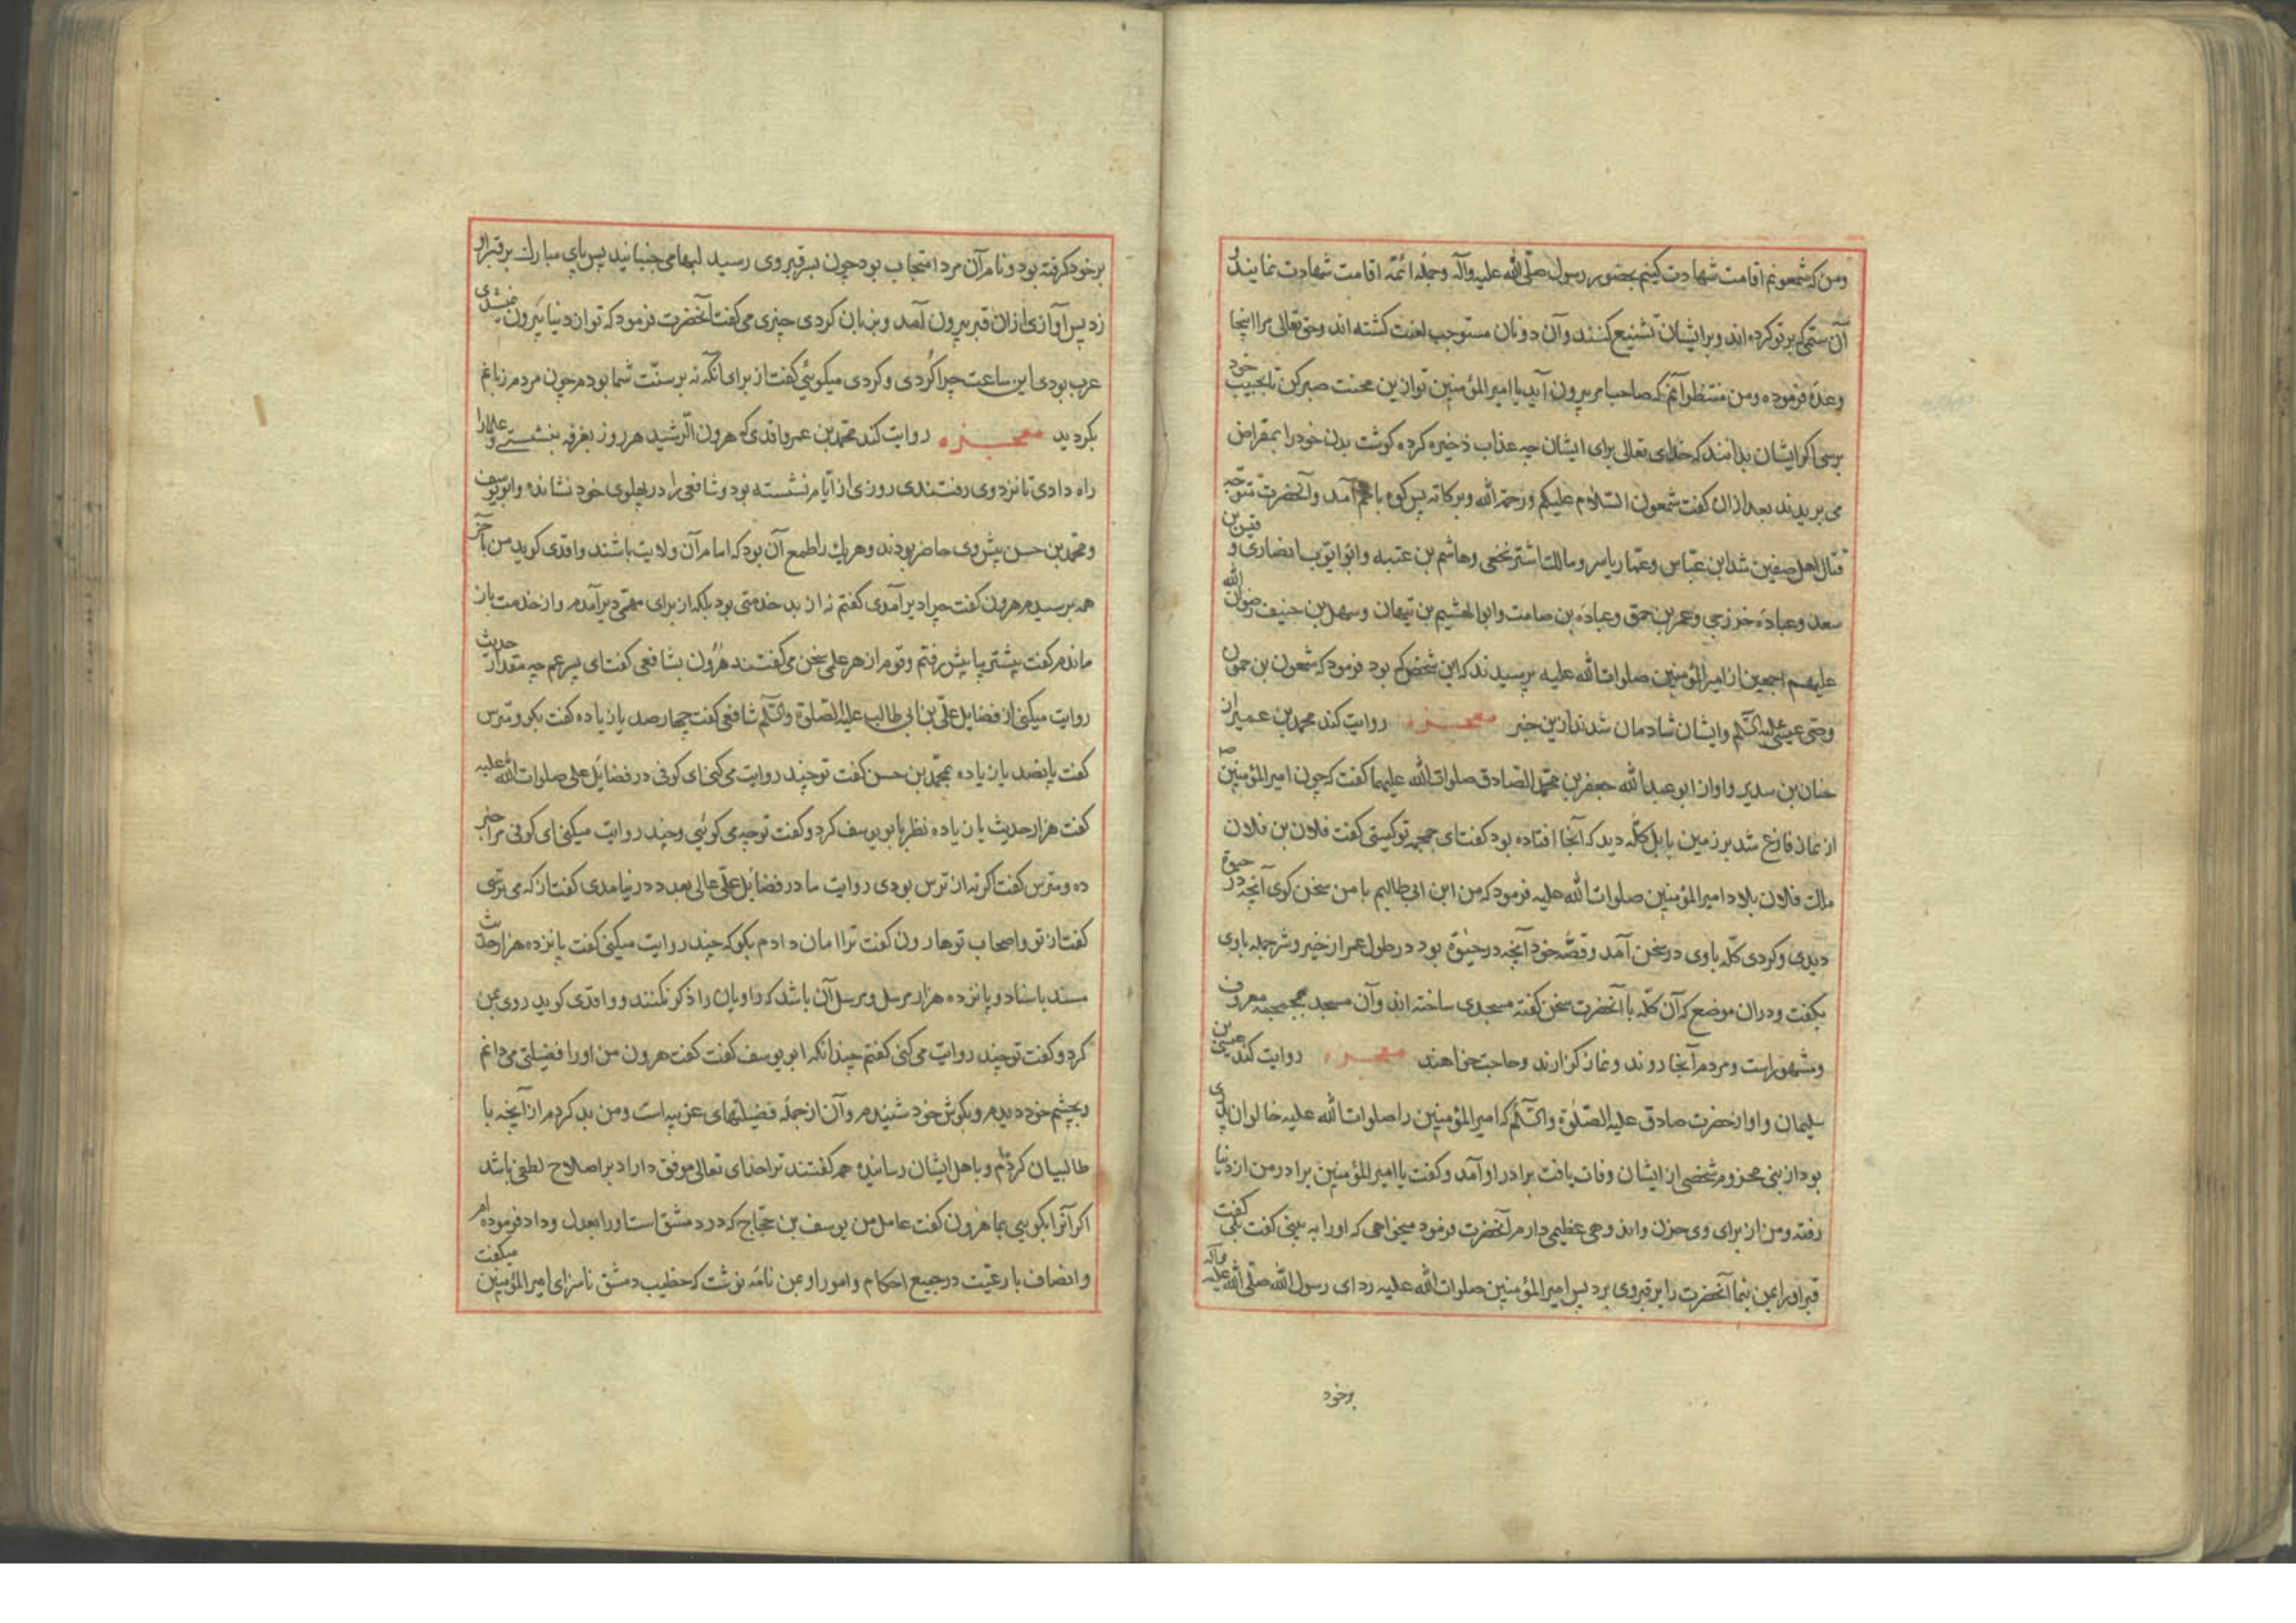 ومن که شمعونم اقامت شهادت کنیم بحضور رسول صلی الله علیه وآله وجمله ائمّه اقامت شهادت نمایند بر
آن ستمی که بر تو کرده اند وبر ایشان تشنیع کنند وآن دونان مستوجب لعنت کشته اند وحق تعالی مرا اینجا
وعده فرموده ومن منتظر آنم که صاحب امر بیرون آید یا امیر المؤمنین تو ازین محنت صبر کن تا بحبیب خود
برسی اکر ایشان بدانند که خدای تعالی برای ایشان چه عذاب ذخیره کرده کوشت بدن خود را بمقراض
می بریدند بعد ازان کفت شمعون السّلام علیکم ورحمة الله وبرکاته پس کوه باهم آمد وآنحضرت متوجّه
قتال اهل صفین شد ابن عبّاس وعمّار یاسر ومالک اشتر نخعی وهاشم بن عتبه وابو ایّوب انصاری وقیس بن
سعد وعباده خزرجی وعمر بن حمق وعباده بن صامت وابو الهشیم بن تیهان وسهل بن حنیف رضوان الله
علیهم اجمعین از امیر المؤمنین صلوات الله علیه پرسیدند که این شخص که بود فرمود که شمعون بن حمون
وصّی عیسی علیه السّلام وایشان شادمان شدند ازین خبر معجزه روایت کند محمد بن عمیر از
حنان بن سدیر واو از ابو عبد الله جعفر بن محمّد الصّادق صلوات الله علیهما کفت که چون امیر المؤمنین ص
از نماز فارغ شد بر زمین بابل کلّه دید که آنجا افتاده بود کفت ای جمجمه تو کیستی کفت فلان بن فلان
ملک فلان بلاد امیر المؤمنین صلوات الله علیه فرمود که من ابن ابی طالبم با من سخن کوی آنچه در حیوة
دیدی وکردی کلّه با وی در سخن آمد وقصّه خود آنچه در حیوة بود در طول عمر از خیر وشر جمله با وی
بکفت ودران موضع که آن کلّه با آنحضرت سخن کفته مسجدی ساخته اند وآن مسجد بجمجمه معروف
ومشهور است ومردم آنجا روند ونماز کزارند وحاجت خواهند معجزه روایت کند عیسی بن
سلیمان واو از حضرت صادق علیه الصّلوة والسّلام که امیر المؤمنین را صلوات الله علیه خالوان پدری
بود از بنی مخزوم شخصی از ایشان وفات یافت برادر او آمد وکفت یا امیر المؤمنین برادر من از دنیا
رفته ومن از برای وی حزن واندوهی عظیمی دارم آنحضرت فرمود میخواهی که او را به بینی کفت بلی کفت
قبر او را بمن بنما آنحضرت را بر قبر وی برد پس امیر المؤمنین صلوات الله علیه ردای رسول الله صلّی الله علیه وآله
برخود
بر خود کرفته بود ونام آن مرد امتجاب بود چون بسر قبر وی رسید لبها می جنبانید پس پای مبارک بر قبر او
زد پس آوازی ازان قبر بیرون آمد وبزبان کردی چیزی می کفت آنحضرت فرمود که تو از دنیا بیرون میشدی
عرب بودی این ساعت چرا کُردی وکردی میکوئی کفت از برای آنکه نه بر سنّت شما بودم چون مردم زبانم
بکردید معجزه روایت کند محمّد بن عمر واقدی که هرون الرّشید هر روز بغرفه بنشستی وعلما را
راه دادی تا نزد وی رفتندی روزی از ایّام نشسته بود وشافعی را در پهلوی خود نشانده وابو یوسف
ومحمّد بن حسن پیش وی حاضر بودند وهر یک را طمع آن بود که امام آن ولایت باشند واقدی کوید من بآخر
همه برسیدم هرون کفت چرا دیر آمدی کفتم نه از بد خدمتی بود بلکه از برای مهمّی دیر آمدم واز خدمت باز
ماندم کفت پیشتر بیا پیش رفتم وقوم از هر علمی سخن می کفتند هرون بشافعی کفت ای پسر عم چه مقدار حدیث
روایت میکنی از فضایل علیّ بن ابی طالب علیه الصّلوة والسّلم شافعی کفت چهار صد یا زیاده کفت بکو ومترس
کفت پانصد یا زیاده بمحمّد بن حسن کفت تو چند روایت می کنی ای کوفی در فضائل علی صلوات الله علیه
کفت هزار حدیث یا زیاده نظر بابو یوسف کرد وکفت تو چه می کوئی وچند روایت میکنی ای کوفی مرا خبر
ده ومترس کفت اکر نه از ترس بودی روایت ما در فضائل علیّ عالی بعدد در نیامدی کفت از که می ترسی
کفت از تو واصحاب تو هارون کفت ترا امان دادم بکو که چند روایت میکنی کفت پانزده هزار حدیث
مسند باسناد وپانزده هزار مرسل ومرسل آن باشد که راویان را ذکر نکنند وواقدی کوید روی بمن
کرد وکفت تو چند روایت می کنی کفتم چندانکه ابو یوسف کفت کفت هرون من او را فضیلتی می دانم
وبچشم خود دیدم وبکوش خود شنیدم وآن از جمله فضیلتهای عزیبه است ومن بد کردم از آنچه با
طالبیان کرده ام وباهل ایشان رسانیده همه کفتند ترا خدای تعالی موفق داراد بر اصلاح لطفی باشد
اکر آنرا بکویی بما هرون کفت عامل من یوسف بن حجّاج که در دمشق است او را بعدل وداد فرموده ام
وانصاف با رعیّت در جمیع احکام وامور او بمن نامه نوشت که خطیب دمشق ناسزای امیر المؤمنین میکفت